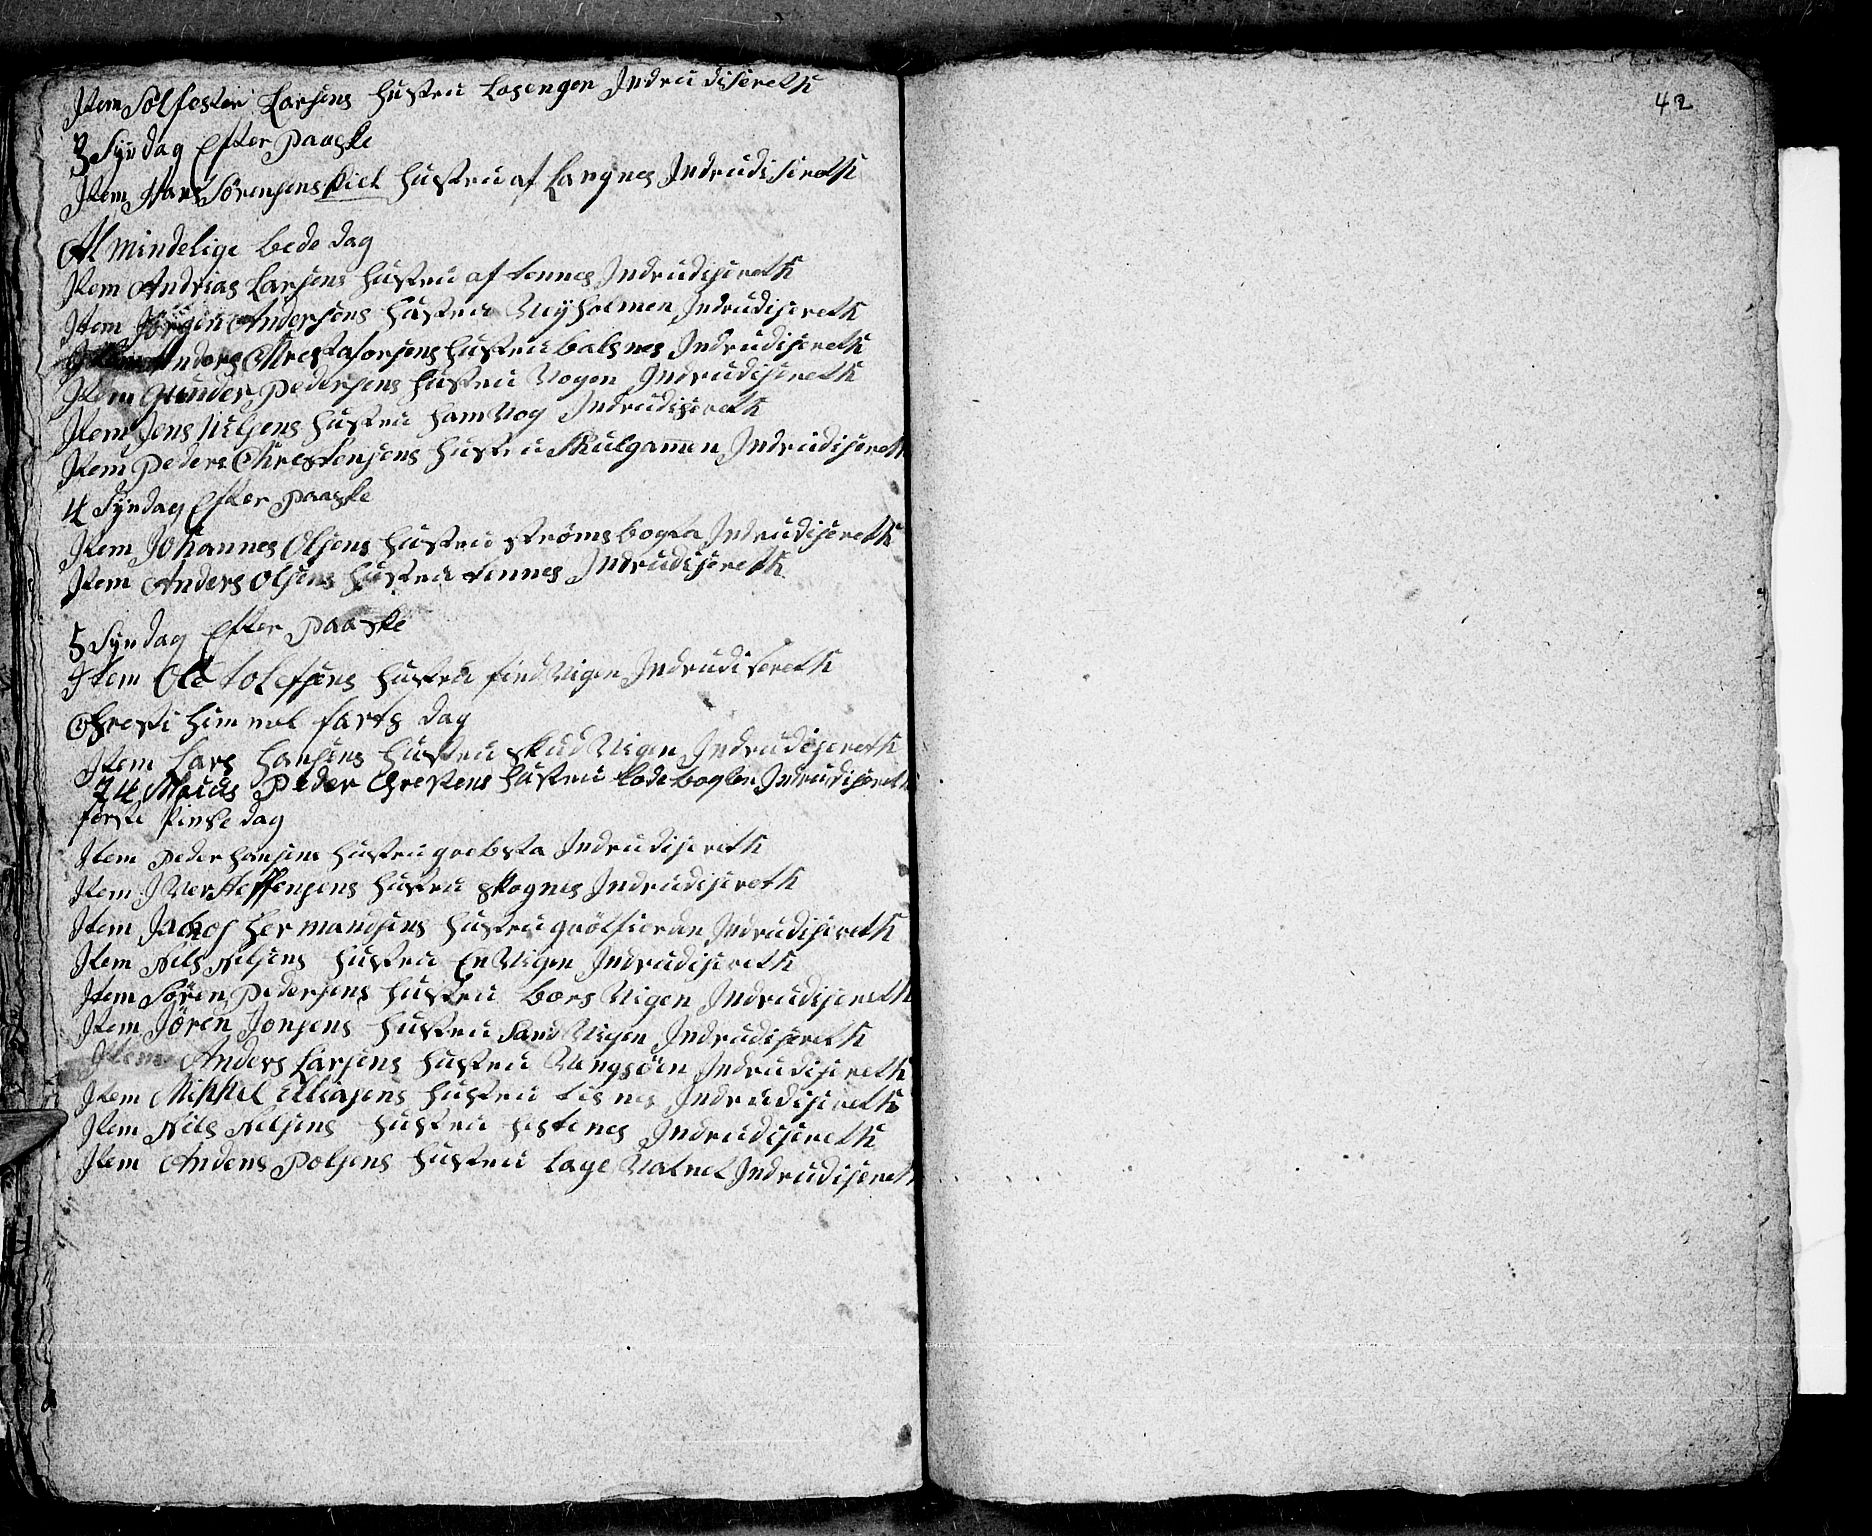 Item Solfester Larsens Hustru Losengen Indrudisereth
3 Syndag Efter Paaske
Item Hans Sørensens Kiel Hustru af Langnes Indrudisereth
Almindelige bede dag
Item Andrias Larsens Hustru af tennes Indrudisereth
Item Jørgen Andersens Hustru Myholmen Indrudisereth
Item Anders Chrestaforsens Hustru balsnes Indrudisereth
Item Gunder Pedersens Hustru Vogen Indrudisereth
Item Jens Nilsens Hustru Hamvog Indrudisereth
Item Peders Chrestensens Hustru Skulgammen Indrudisereth
4 Syndag Efter Paaske
Item Johannes Olsens Hustru Strømsbogta Indrudisereth
Item Anders Olsens Hustru tennes Indrudisereth
5 Syndag Efter Paaske
Item Ole tolefsens Hustru find Vigen Indrudisereth
Chresti Himmel farts dag
Item Lars Hansens Hustru Skud Vigen Indrudisereth
24 Maius Peder Chrestens Hustru Kodebogten Indrudisereth
første Pinse dag
Item Peder Hansens Hustru grebsta Indrudisereth
Item Iver Steffensens Hustru Skognes Indrudisereth
Item Jacob Hermandsens Hustru grøtfiorden Indrudisereth
Item Nils Nilsens Hustru En Vigen Indrudisereth
Item Søren Pedersens Hustru bors Vigen Indrudisereth
Item Jøren Jonsens Hustru Sand Vigen Indrudisereth
Item Anders Larsens Hustru Vengsøen Indrudisereth
Item Mikkel Elliasens Hustru tisnes Indrudisereth
Item Nils Nilsens Hustru Hestenes Indrudisereth
Item Anders Polsens Hustru Lage Vatnet Indrudisereth
42